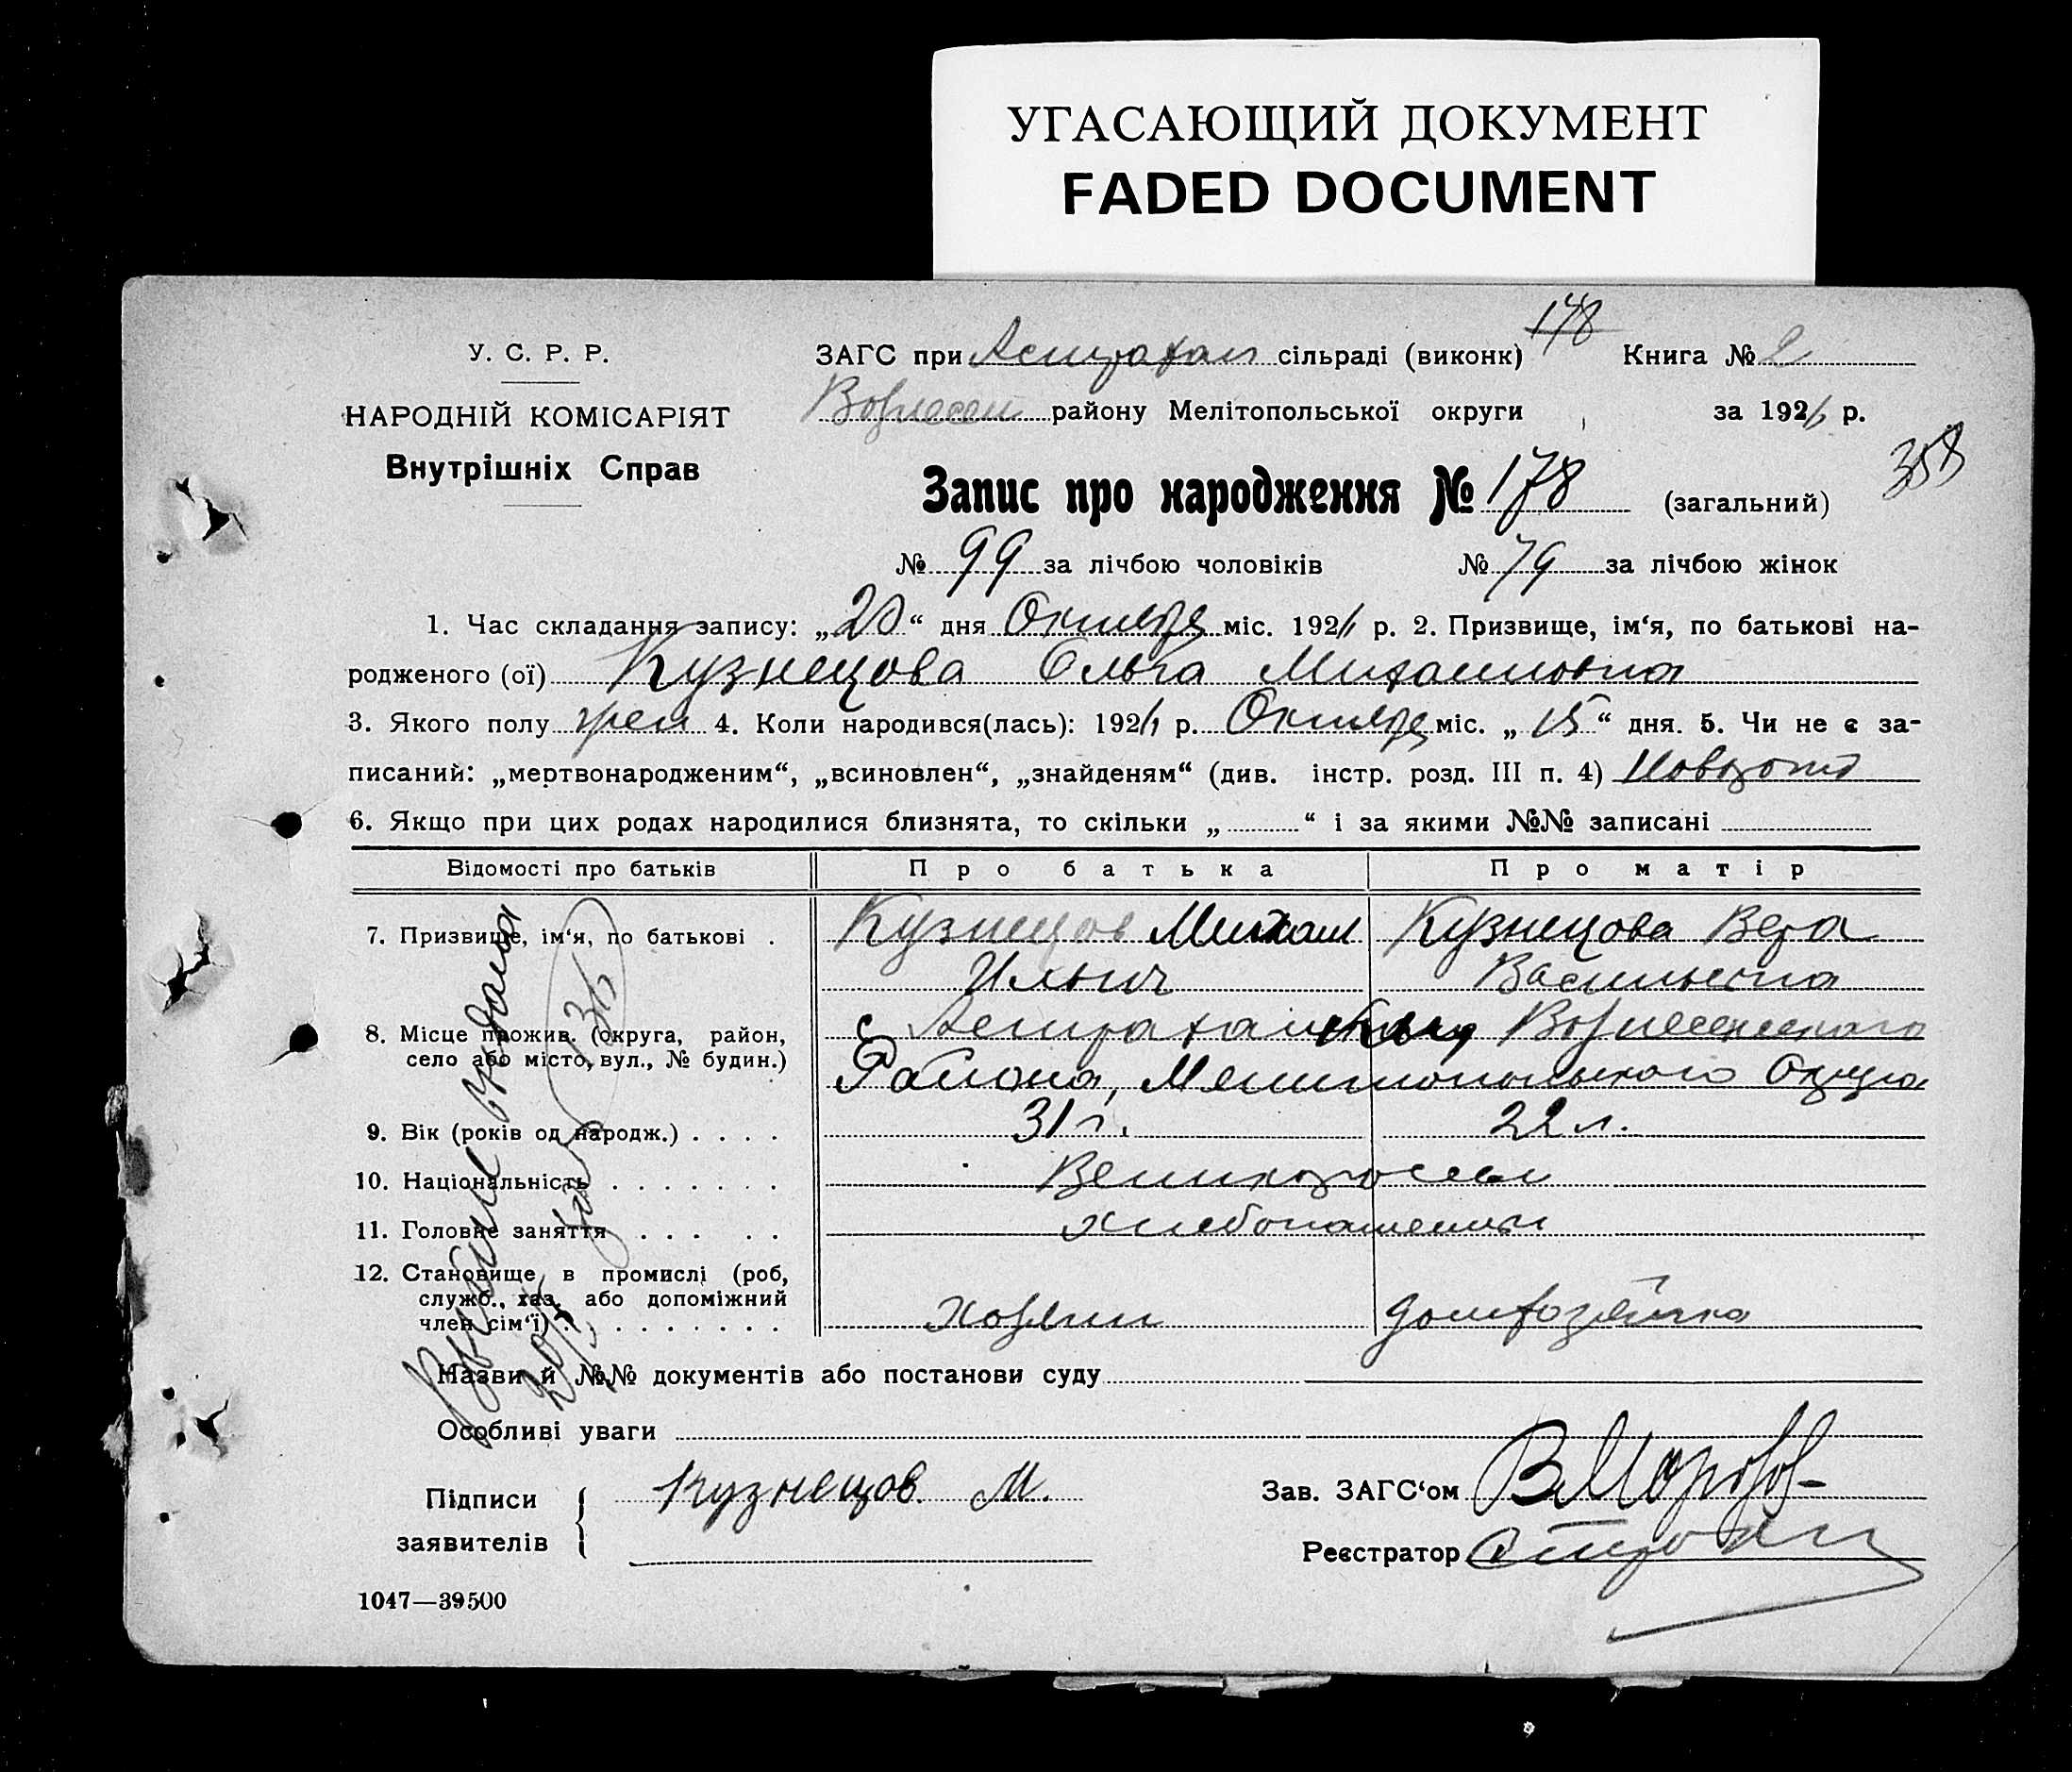 УГАСАЮЩИЙ ДОКУМЕНТ
FADED DOCUMENT
У. С. Р. Р.
НАРОДНІЙ КОМІСАРІЯТ
Внутрішніх Справ
178
ЗАГС при Астрахан сільраді (виконк) Книга № 2
Вознесен району Мелітопольської округи за 1926 р.
358
Запис про народження № 178 (загальний)
№ 99 за лічбою чоловіків № 79 за лічбою жінок
1. Час складання запису: „20“ дня Октября міс. 1926 р. 2. Призвище, ім‘я, по батькові на-
родженого (ої) Кузнецова Ольга Михаиловна
3. Якого полу жен 4. Коли народився(лась): 1926 р. Октября міс. „15“ дня. 5. Чи не є за-
писаний: „мертвонародженим“, „всиновлен“, „знайденям“ (див. інстр. розд. III п. 4)
6. Якщо при цих родах народилися близнята, то скільки „ “ і за якими №№ записані
Відомості про батьків Про батька Про матір
7. Призвище, ім‘я, по батькові . Кузнецов Михаил Кузнецова Вера
Ильич Васильевна
8. Місце прожив. (округа, район, с Астраханка, Вознесенского
село або місто, вул., № будин.) Района, Мелитопольского Округа
9. Вік (років од народж.) . . . . 31 г. 22 л.
10. Національність . . . . . . . Великороссы
11. Головне заняття . . . . . Хлебопашеции
12. Становище в промислі (роб,
служб., хаз. або допоміжний
член сім‘ї) . . . . . . . . Хозяин домхозяйка
Назви й №№ документів або постанови суду
Особливі уваги
Підписи
заявителів
Кузнецов М.
Зав. ЗАГС‘ом ВМорозов
Реєстратор
1047—39500
136